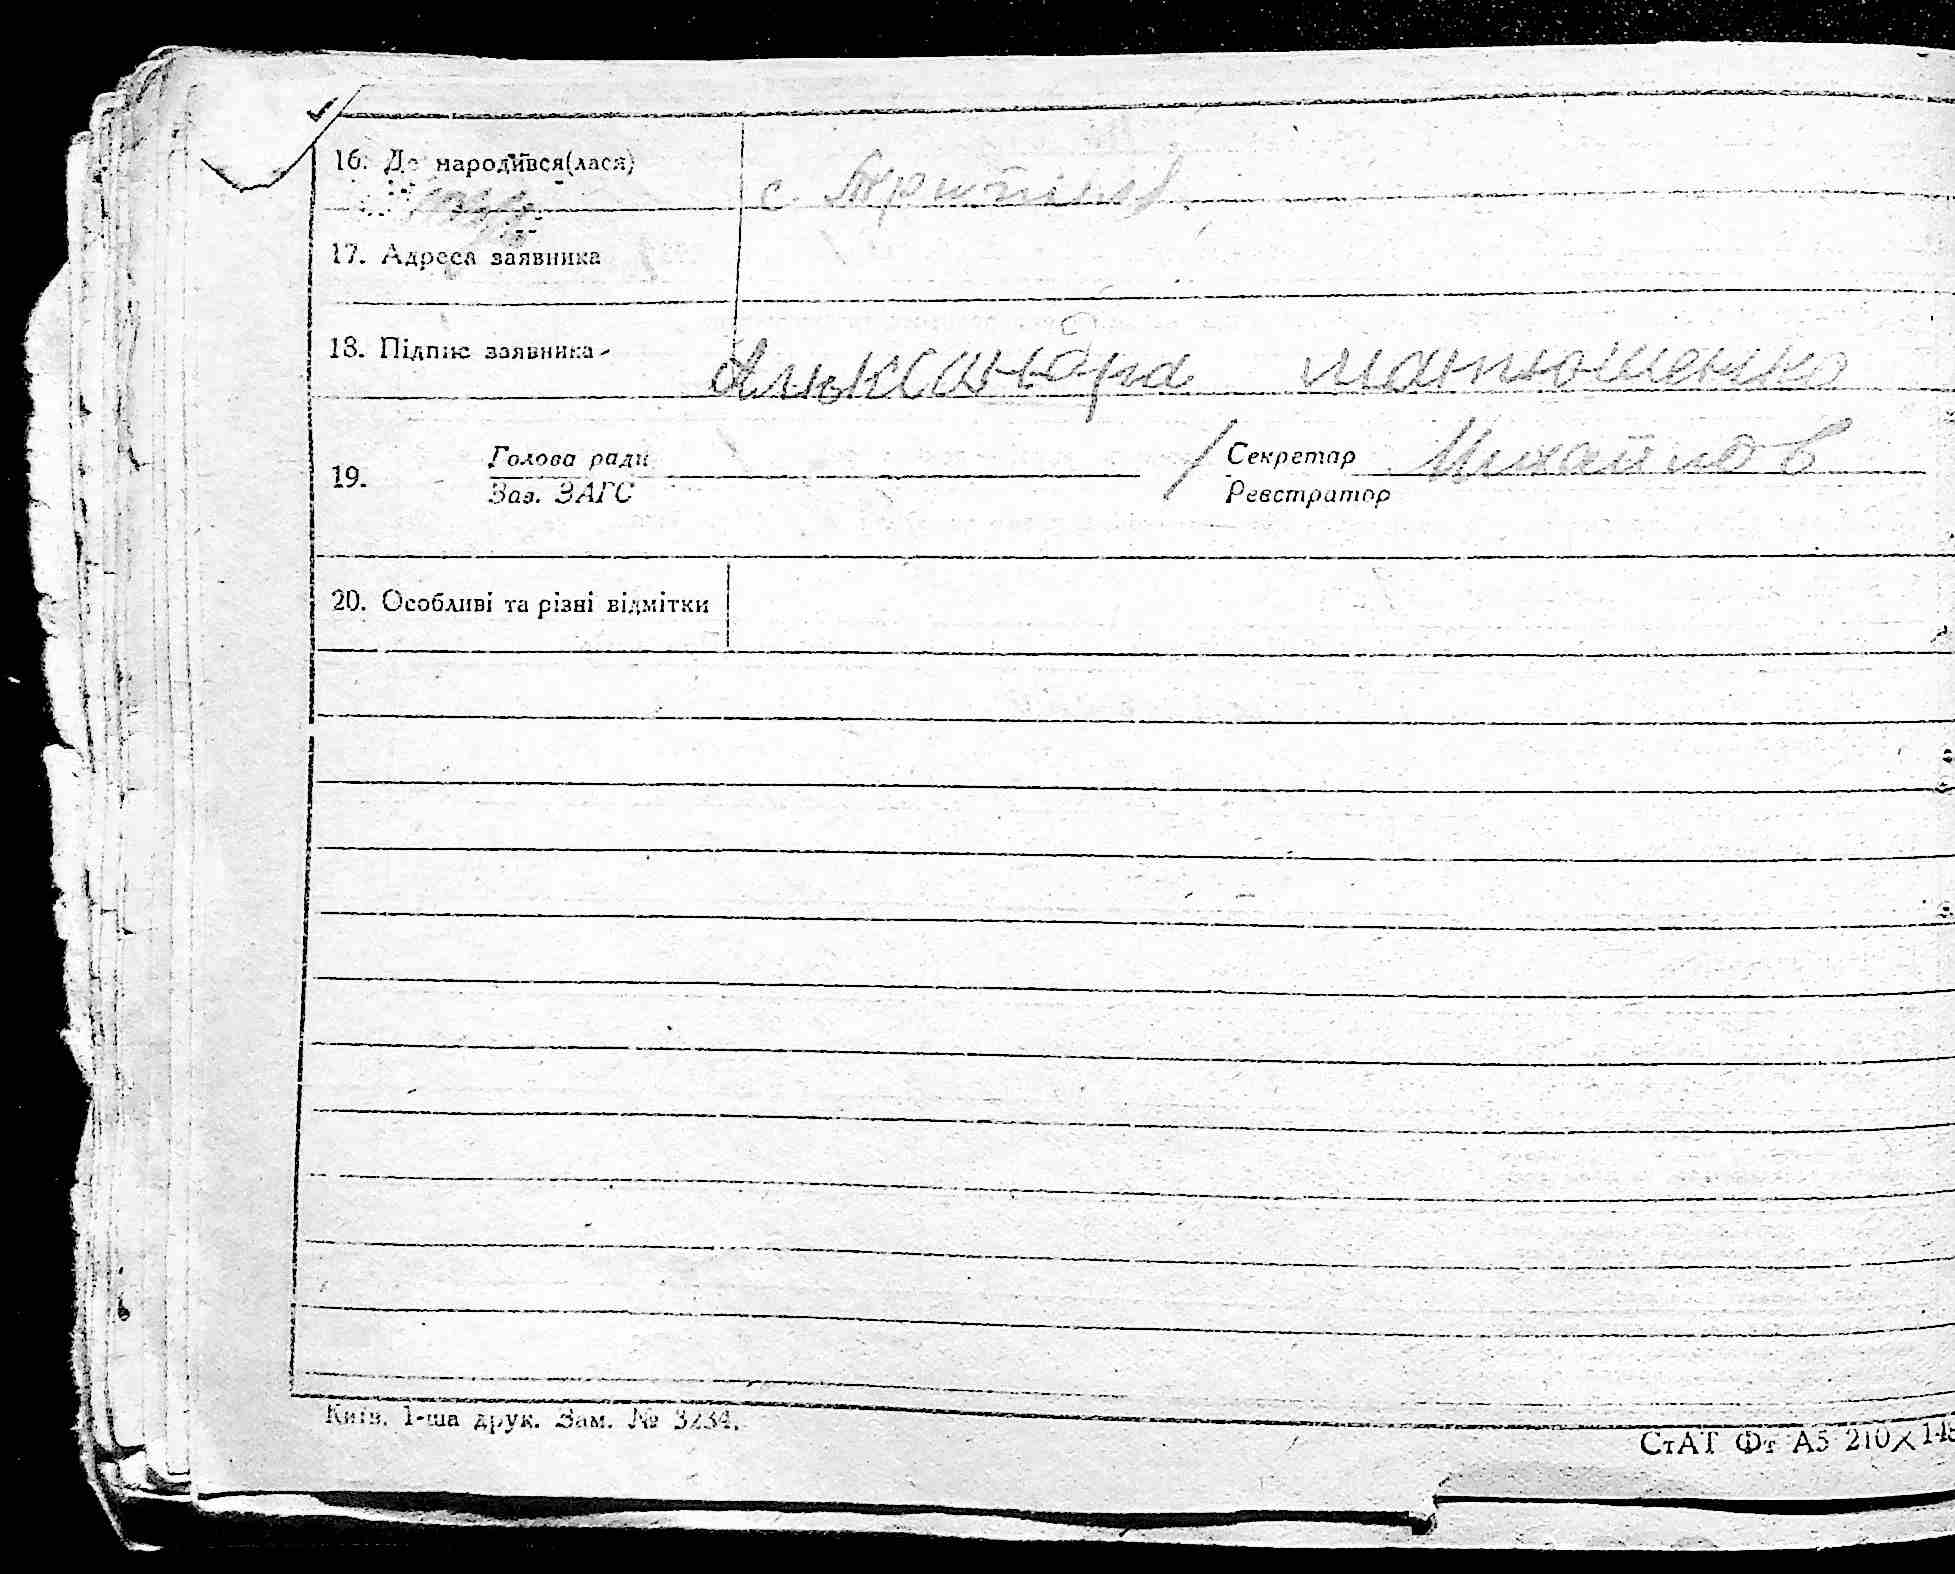 16. Де народився(лася) с Трипілля
17. Адреса заявника
18. Підпис заявника Александра Матюшенко
19. Голова ради Секретар Михайлов
Зав. ЗАГС Реєстратор
20. Особливі та різні відмітки
Київ. 1-ша друк. Зам. № 3234.
СтАТ Фт А5 210×148